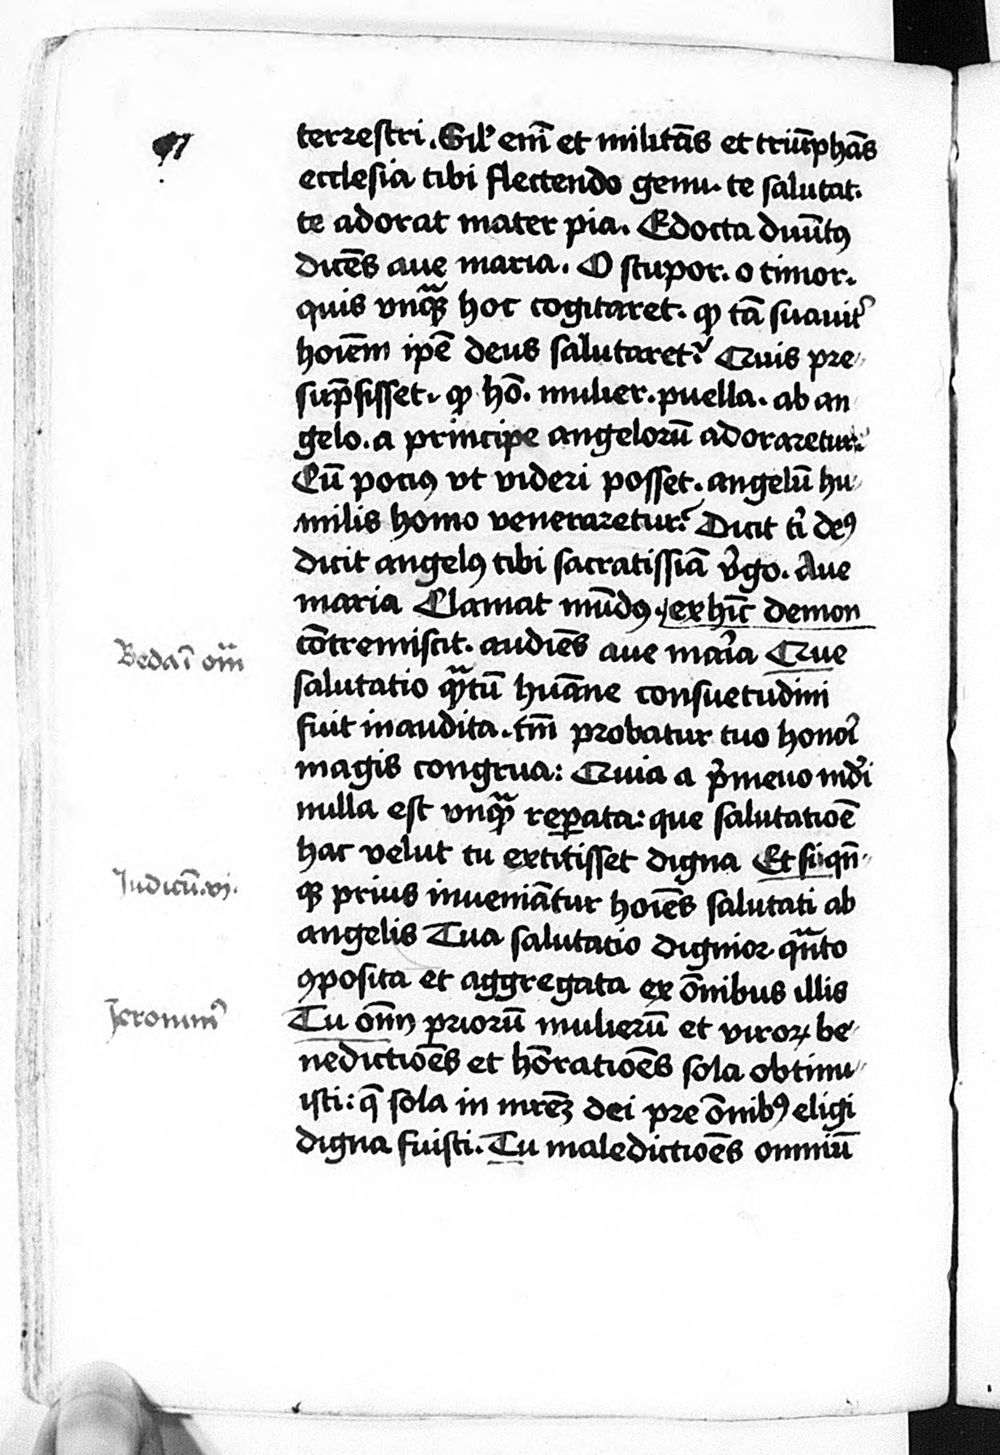 terrestri. Sil' em̄ et militās et triūphās
ecclesia tibi flectendo genu. te salutat.
te adorat mater pia. Edocta diuīt9
dicēs aue maria. O stupor. o timor.
quis vnqᷓꝫ hoc cogitaret. ꝙ tā suauit᷑
hoīem ipē deus salutaret? Quis pre
sūpsisset. ꝙ hō. mulier. puella. ab an
gelo. a principe angelorū adoraretur.
Cū poci9 vt videri posset. angelū hu
milis homo veneraretur? Dicit ti de9
dicit angel9 tibi sacratissīa v̓go. Aue
maria Clamat mūd9. ex hīc demon
cōtremiscit. audiēs aue mar̓ia Que
Beda ī om̄
salutatio qᷓꝫtū huāne consuetudini
fuit inaudita. tm̄ probatur tuo honoī
magis congrua: Quia a p̓meuo mūdi
nulla est vnqᷓꝫ reꝑata: que salutatioē
hac velut tu extitisset digna Et si qn̄
Iudicū. vi.
qꝫ prius inueniātur hoīes salutati ab
angelis Tua salutatio dignior qᷓnto
ꝯposita et aggregata ex ōnibus illis
Ieronim9
Tu om̄ priorū mulierū et viroꝝ be
nedictioēs et hōratioēs sola obtinu
isti: q̄ sola in mrēꝫ dei pre ōnib9 eligi
digna fuisti. Tu maledictioēs omniū